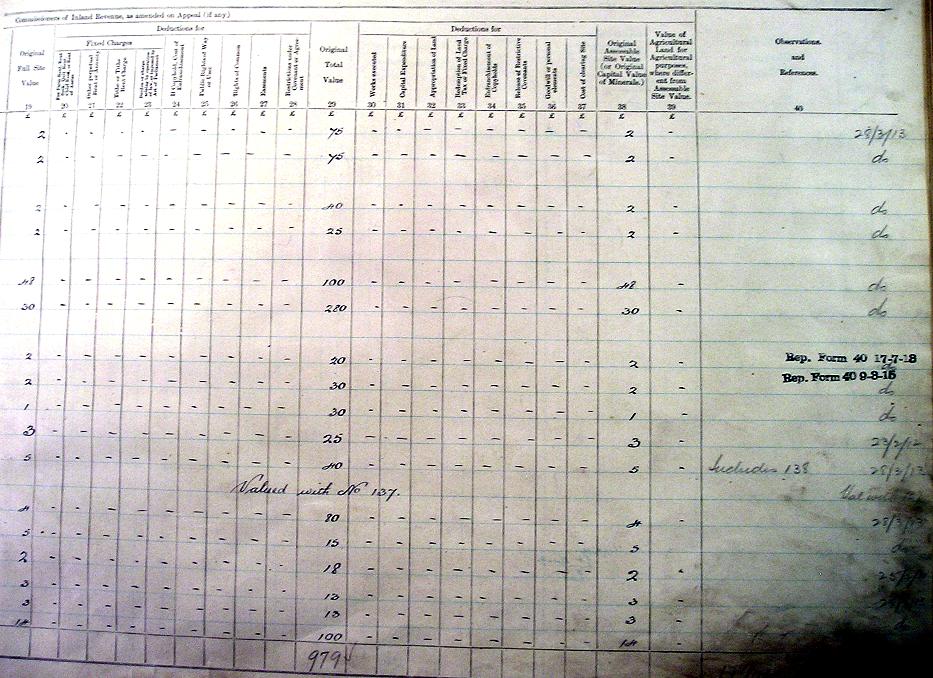 Commissioners of Inland Revenue, as amended on Appeal (if any)
Deductions for
Deductions for
Fixed Charges
Original Full Site Value
Tithe or Tithe Rent Charge
Public Rights of Way or User
Rights of Common
Easements
Restrictions under Covenant or Agreement
Original Total Value
Works executed
Capital Expenditure
Appropriation of Land
Redemption of Land Tax or Fixed Charge
Enfranchisement of Copyholds
Release of Restrictive Covenants
Goodwill or personal elements
Cost of clearing Site
Original Assessable Site Value (or Original Capital Value of Minerals.)
Value of Agricultural Land for Agricultural purposes, where different from Assessable Site Value.
Observations. and References.
19 20 21 22 23 24 25 26 27 28 29 30 31 32 33 34 35 36 37 38 39 40
£ £ £ £ £ £ £ £ £ £ £ £ £ £ £ £ £ £ £ £ £
2 - - - - - - - - - 75 - - - - - - - - 2 - 28/3/13
2 - - - - - - - - - 75 - - - - - - - - 2 - do
2 - - - - - - - - - 40 - - - - - - - - 2 - do
2 - - - - - - - - - 25 - - - - - - - - 2 - do
48 - - - - - - - - - 100 - - - - - - - - 48 - do
30 - - - - - - - - - 280 - - - - - - - - 30 - do
2 - - - - - - - - - 20 - - - - - - - - 2 - Rep. Form 40 17-7-18
2 - - - - - - - - - 30 - - - - - - - - 2 - Rep. Form 40 9-3-15 do
1 - - - - - - - - - 30 - - - - - - - - 1 - do
3 - - - - - - - - - 25 - - - - - - - - 3 - 23/2/12
5 - - - - - - - - - 40 - - - - - - - - 5 - Includes 138 28/3/13
Valued with No 137. Val with
4 - - - - - - - - - 80 - - - - - - - - 4 - 28/3/13
5 - - - - - - - - - 15 - - - - - - - - 5 - do
2 - - - - - - - - - 18 - - - - - - - - 2 -
3 - - - - - - - - - 13 - - - - - - - - 3 -
3 - - - - - - - - - 13 - - - - - - - - 3 -
14 - - - - - - - - - 100 - - - - - - - - 14 -
979